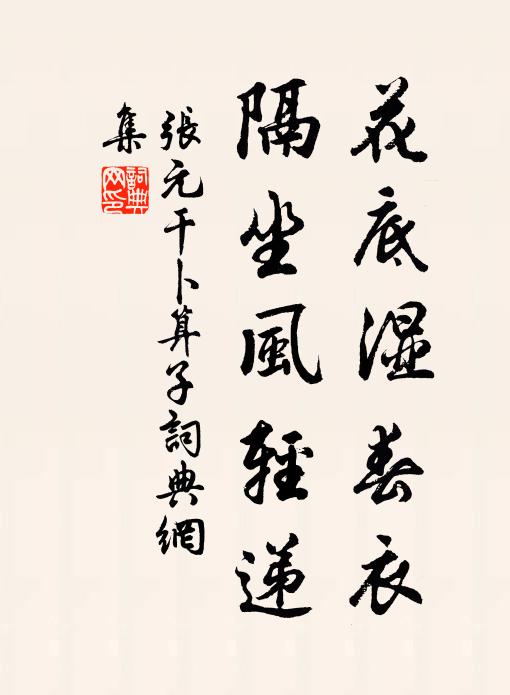 花底湿春衣
隔坐風輕递
張元干卜算子詞典網
集
詞典網印